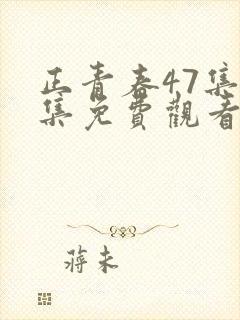 正青春47集
集免費觀看
蔣未